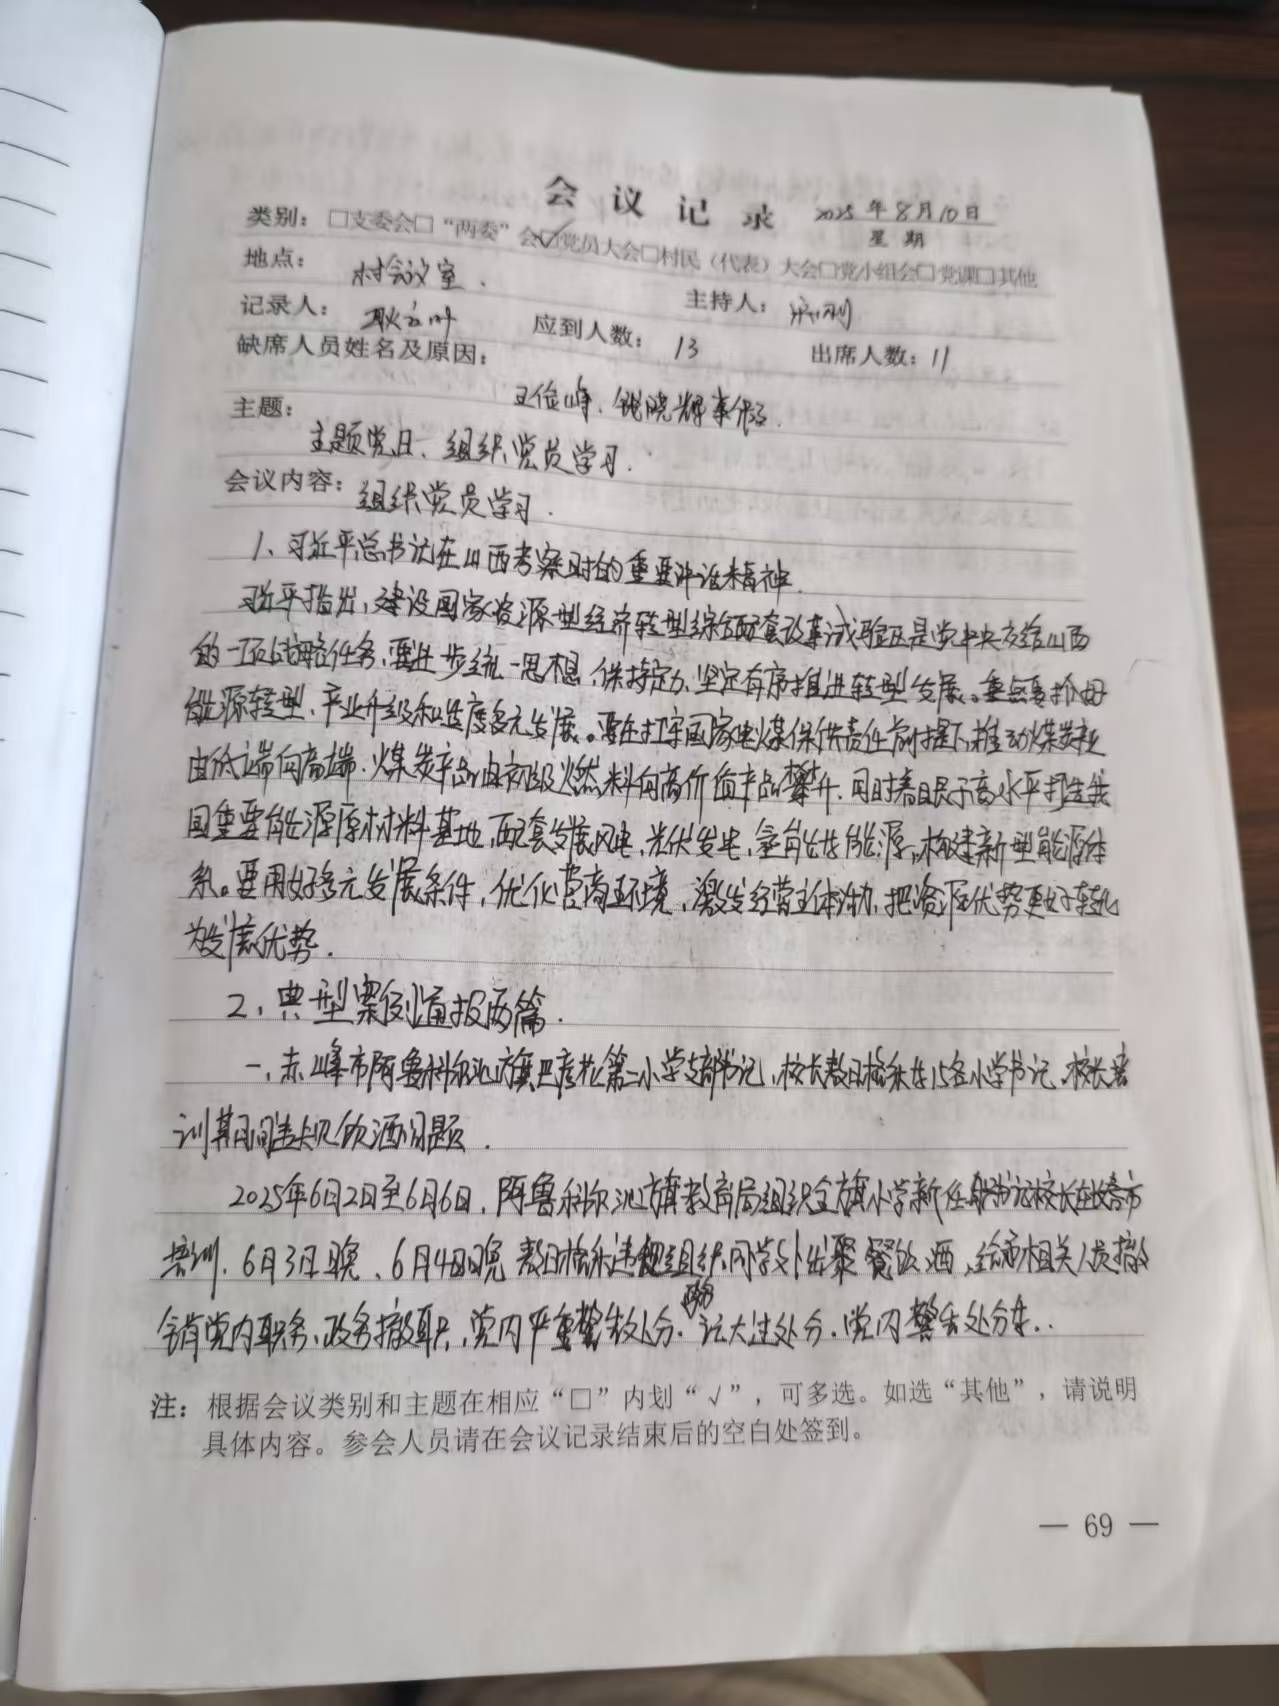 会议记录 2025年8月10日
星期
类别：□支委会□“两委”会☑党员大会□村民（代表）大会□党小组会□党课□其他
地点：村会议室.
记录人： 主持人：
应到人数：13 出席人数：11
缺席人员姓名及原因：
王俊峰、晓辉事假.
主题：
主题党日、组织党员学习.
会议内容：组织党员学习.
1、习近平总书记在山西考察时的重要讲话精神.
习近平指出，建设国家资源型经济转型综合配套改革试验区是党中央交给山西
的一项战略任务，要进一步统一思想，保持定力，坚定有序推进转型发展。重点要抓好
能源转型、产业升级和适度多元发展。要在扛牢国家电煤保供责任前提下，推动煤炭产业
由低端向高端、煤炭产品由初级燃料向高价值产品攀升.同时着眼于高水平打造我
国重要能源原材料基地，配套发展风电，光伏发电，氢能等能源，构建新型能源体
系。要用好多元发展条件，优化营商环境，激发经营主体活力，把资源优势更好转化
为发展优势.
2、典型案例通报两篇.
一、赤峰市阿鲁科尔沁旗巴彦花第二小学支部书记、校长敖日格乐等15名小学书记、校长培
训期间违规饮酒问题.
2025年6月2日至6月6日，阿鲁科尔沁旗教育局组织全旗小学新任职书记校长在长春市
培训.6月3日晚、6月4日晚敖日格乐违规组织同学外出聚餐饮酒，给予相关人员撤
销党内职务、政务撤职，党内严重警告处分、政务记大过处分.党内警告处分等..
注：根据会议类别和主题在相应“□”内划“√”，可多选。如选“其他”，请说明
具体内容。参会人员请在会议记录结束后的空白处签到。
— 69 —